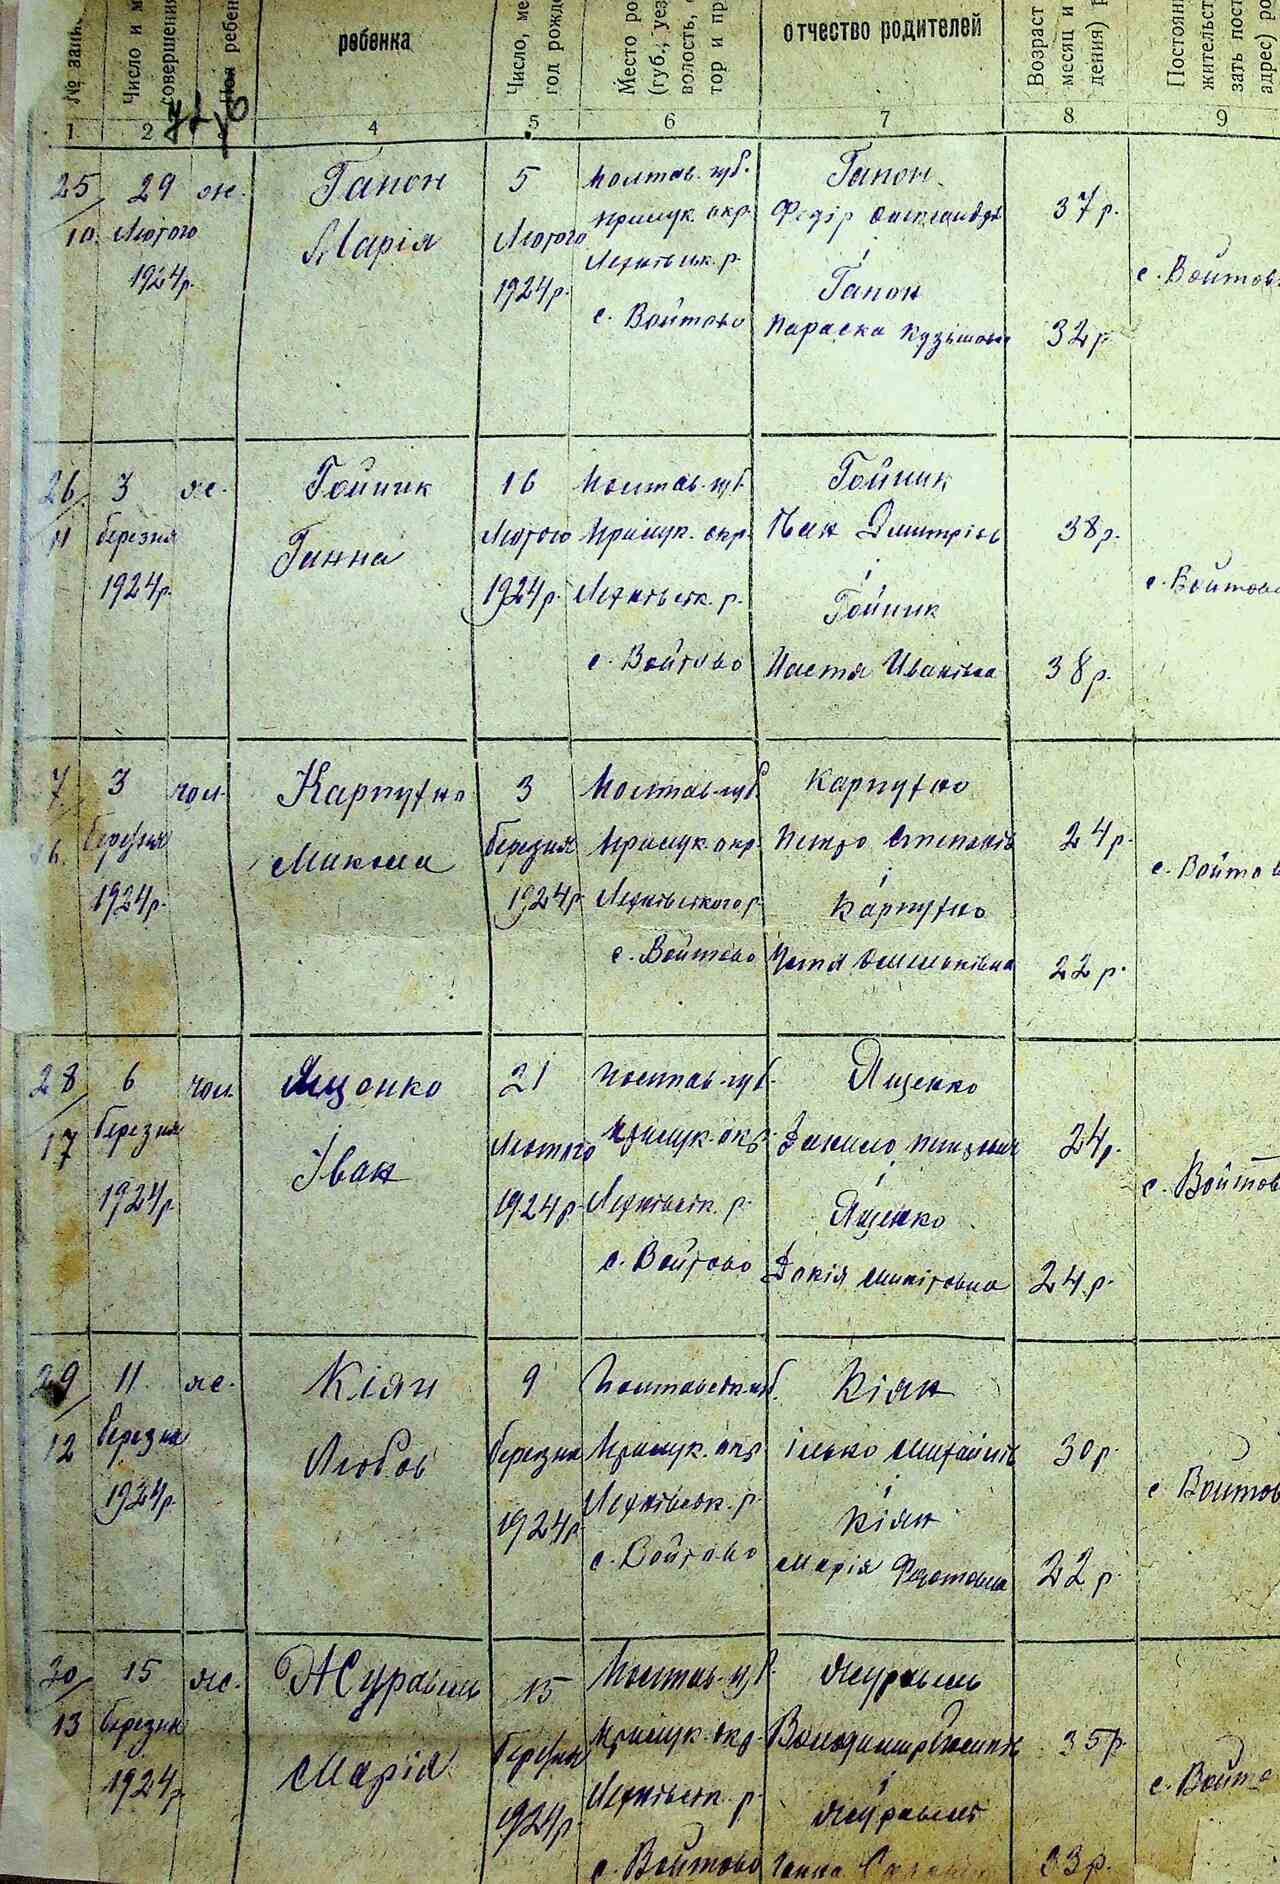 № запи
Число и м
совершения
Пол ребен
ребенка
Число, ме
год рожде
Место ро
(губ., уез
волость,
тор и пр
отчество родителей
Возраст
месяц и
дения)
Постоян
жительст
зать пост
адрес) ро
1 2 4 5 6 7 8 9
25/10 29 Лютого 1924р. ж.
Гапон
Марія
5
Лютого
1924р.
Полтав. губ.
Прилук. окр.
р.
с. Войтово
Гапон
Федір
і
Гапон
Параска Кузьмовна
37р.
32р.
с. Войтов
26/11 3 березня 1924р. ж.
Гойник
Ганна
16
Лютого
1924р.
Полтав. губ.
Прилук. окр.
р.
с. Войтово
Гойник
Дмитрів
і
Гойник
Настя Иванівна
38р.
38р.
с. Войтово
7 16. 3 березня 1924р. чол.
Карпухно
Микола
3
березня
1924р.
Полтав. губ.
Прилук. окр.
р.
с. Войтово
Карпухно
Петро Степанів
і
Карпухно
24р.
22р.
с. Войтов
28/17 6 березня 1924р. чол.
Ященко
Іван
21
Лютого
1924р.
Полтав. губ.
Прилук. окр.
р.
с. Войтово
Ященко
Данило Петрович
і
Ященко
Микитовна
24р.
24р.
с. Войтов
29/12 11 березня 1924р. ж.
Кіян
Любов
9
березня
1924р.
губ.
Прилук. окр.
р.
с. Войтово
Кіян
Ілько Михайлів
і
Кіян
Марія Федотовна
30р.
22р.
с. Войтов
30/13 15 березня 1924р. ж.
Журавель
Марія
15
березня
1924р.
Полтав. губ.
Прилук. окр.
р.
с. Войтово
Журавель
Володимир
і
Журавель
Ганна
35р.
33р.
с. Войто